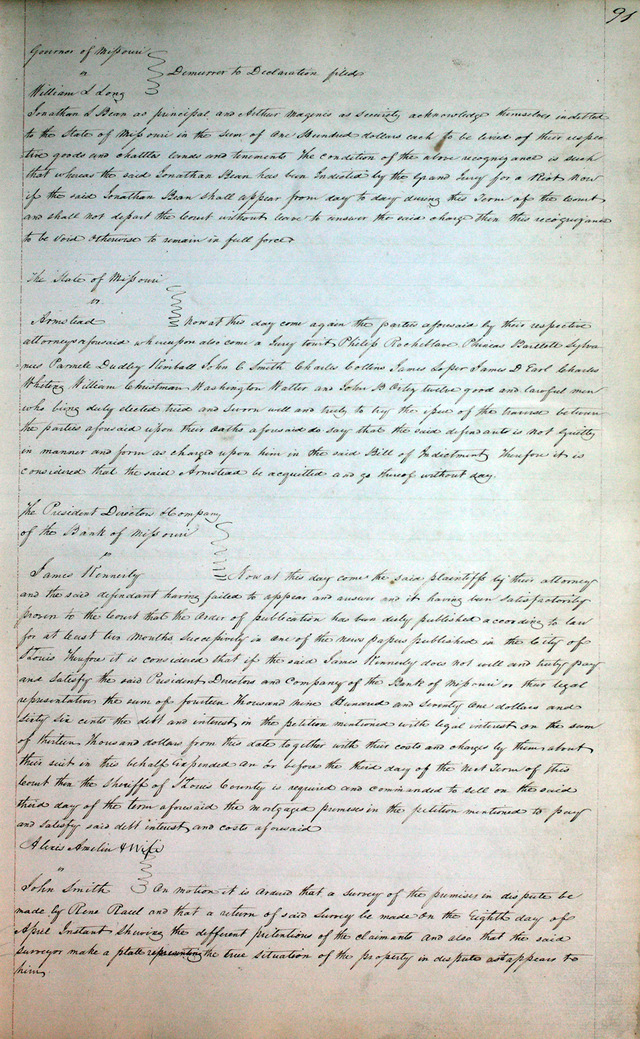 91
Governor of Missouri
v
Demurrer to Declaration filed
William L Long
Jonathan L Bean as principal and Arthur Magenis as security acknowledge themselves indebted
to the State of Missouri in the sum of One Hundred dollars each to be levied of their respec
tive goods and chattles lands and tenements The condition of the above recognizance is such
that whereas the said Jonathan Bean has been Indicted by the Grand Jury for a Riot Now
if the said Jonathan Bean shall appear from day to day during this Term of the Court
and shall not depart the Court without leave to answer the said charge then this recognizance
to be void otherwise to remain in full force
The State of Missouri
vs
Armstead
Now at this day come again the parties aforesaid by their respective
attorneys aforesaid whereupon also come a Jury towit Philip Rocheblave Phineas Bartlett Sylva
nus Parmele Dudley Kimball John C Smith Charles Collins James Soper James D Earl Charles
William Christman Washington Walter and John B twelve good and lawful men
who being duly elected tried and sworn well and truly to try the issue of the traverse between
the parties aforesaid upon their oaths aforesaid do say that the said defendants is not guilty
in manner and form as charged upon him in the said Bill of Indictment Therefore it is
considered that the said Armstead be acquitted and go thereof without day.
The President Directors & Company
of the Bank of Missouri
vs
James Kennerly
Now at this day come the said plaintiffs by their attorney
and the said defendant having failed to appear and answer and it having been satisfactorily
proven to the Court that the order of publication has been duly published according to law
for at least two Months successively in one of the news papers published in the City of
St Louis Therefore it is considered that if the said James Kennerly does not well and truly pay
and satisfy the said President Directors and Company of the Bank of Missouri or their legal
representatives the sum of fourteen Thousand nine Hundred and seventy one dollars and
sixty six cents the debt and interest in the petition mentioned with legal interest on the sum
of thirteen Thousand dollars from this date together with their costs and charges by them about
their suit in this behalf expended on or before the third day of the next Term of this
Court then the sheriff of St Louis County is required and commanded to sell on the said
third day of the term aforesaid the mortgaged premises in the petition mentioned to pay
and satisfy said debt interest and costs aforesaid
Alexis Amelin & Wife
vs
John Smith
On motion it is ordered that a survey of the premises in dispute be
made by Rene Paul and that a return of said survey be made on the Eighth day of
April Instant shewing the different pretentions of the claimants and also that the said
surveyor make a platt representing the true situation of the property in dispute as appears to
him